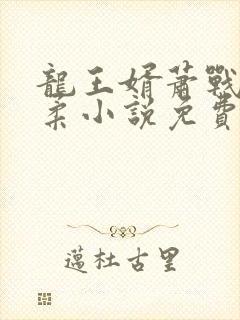 龍王婿蕭戰
柔小說免費
邁杜古里